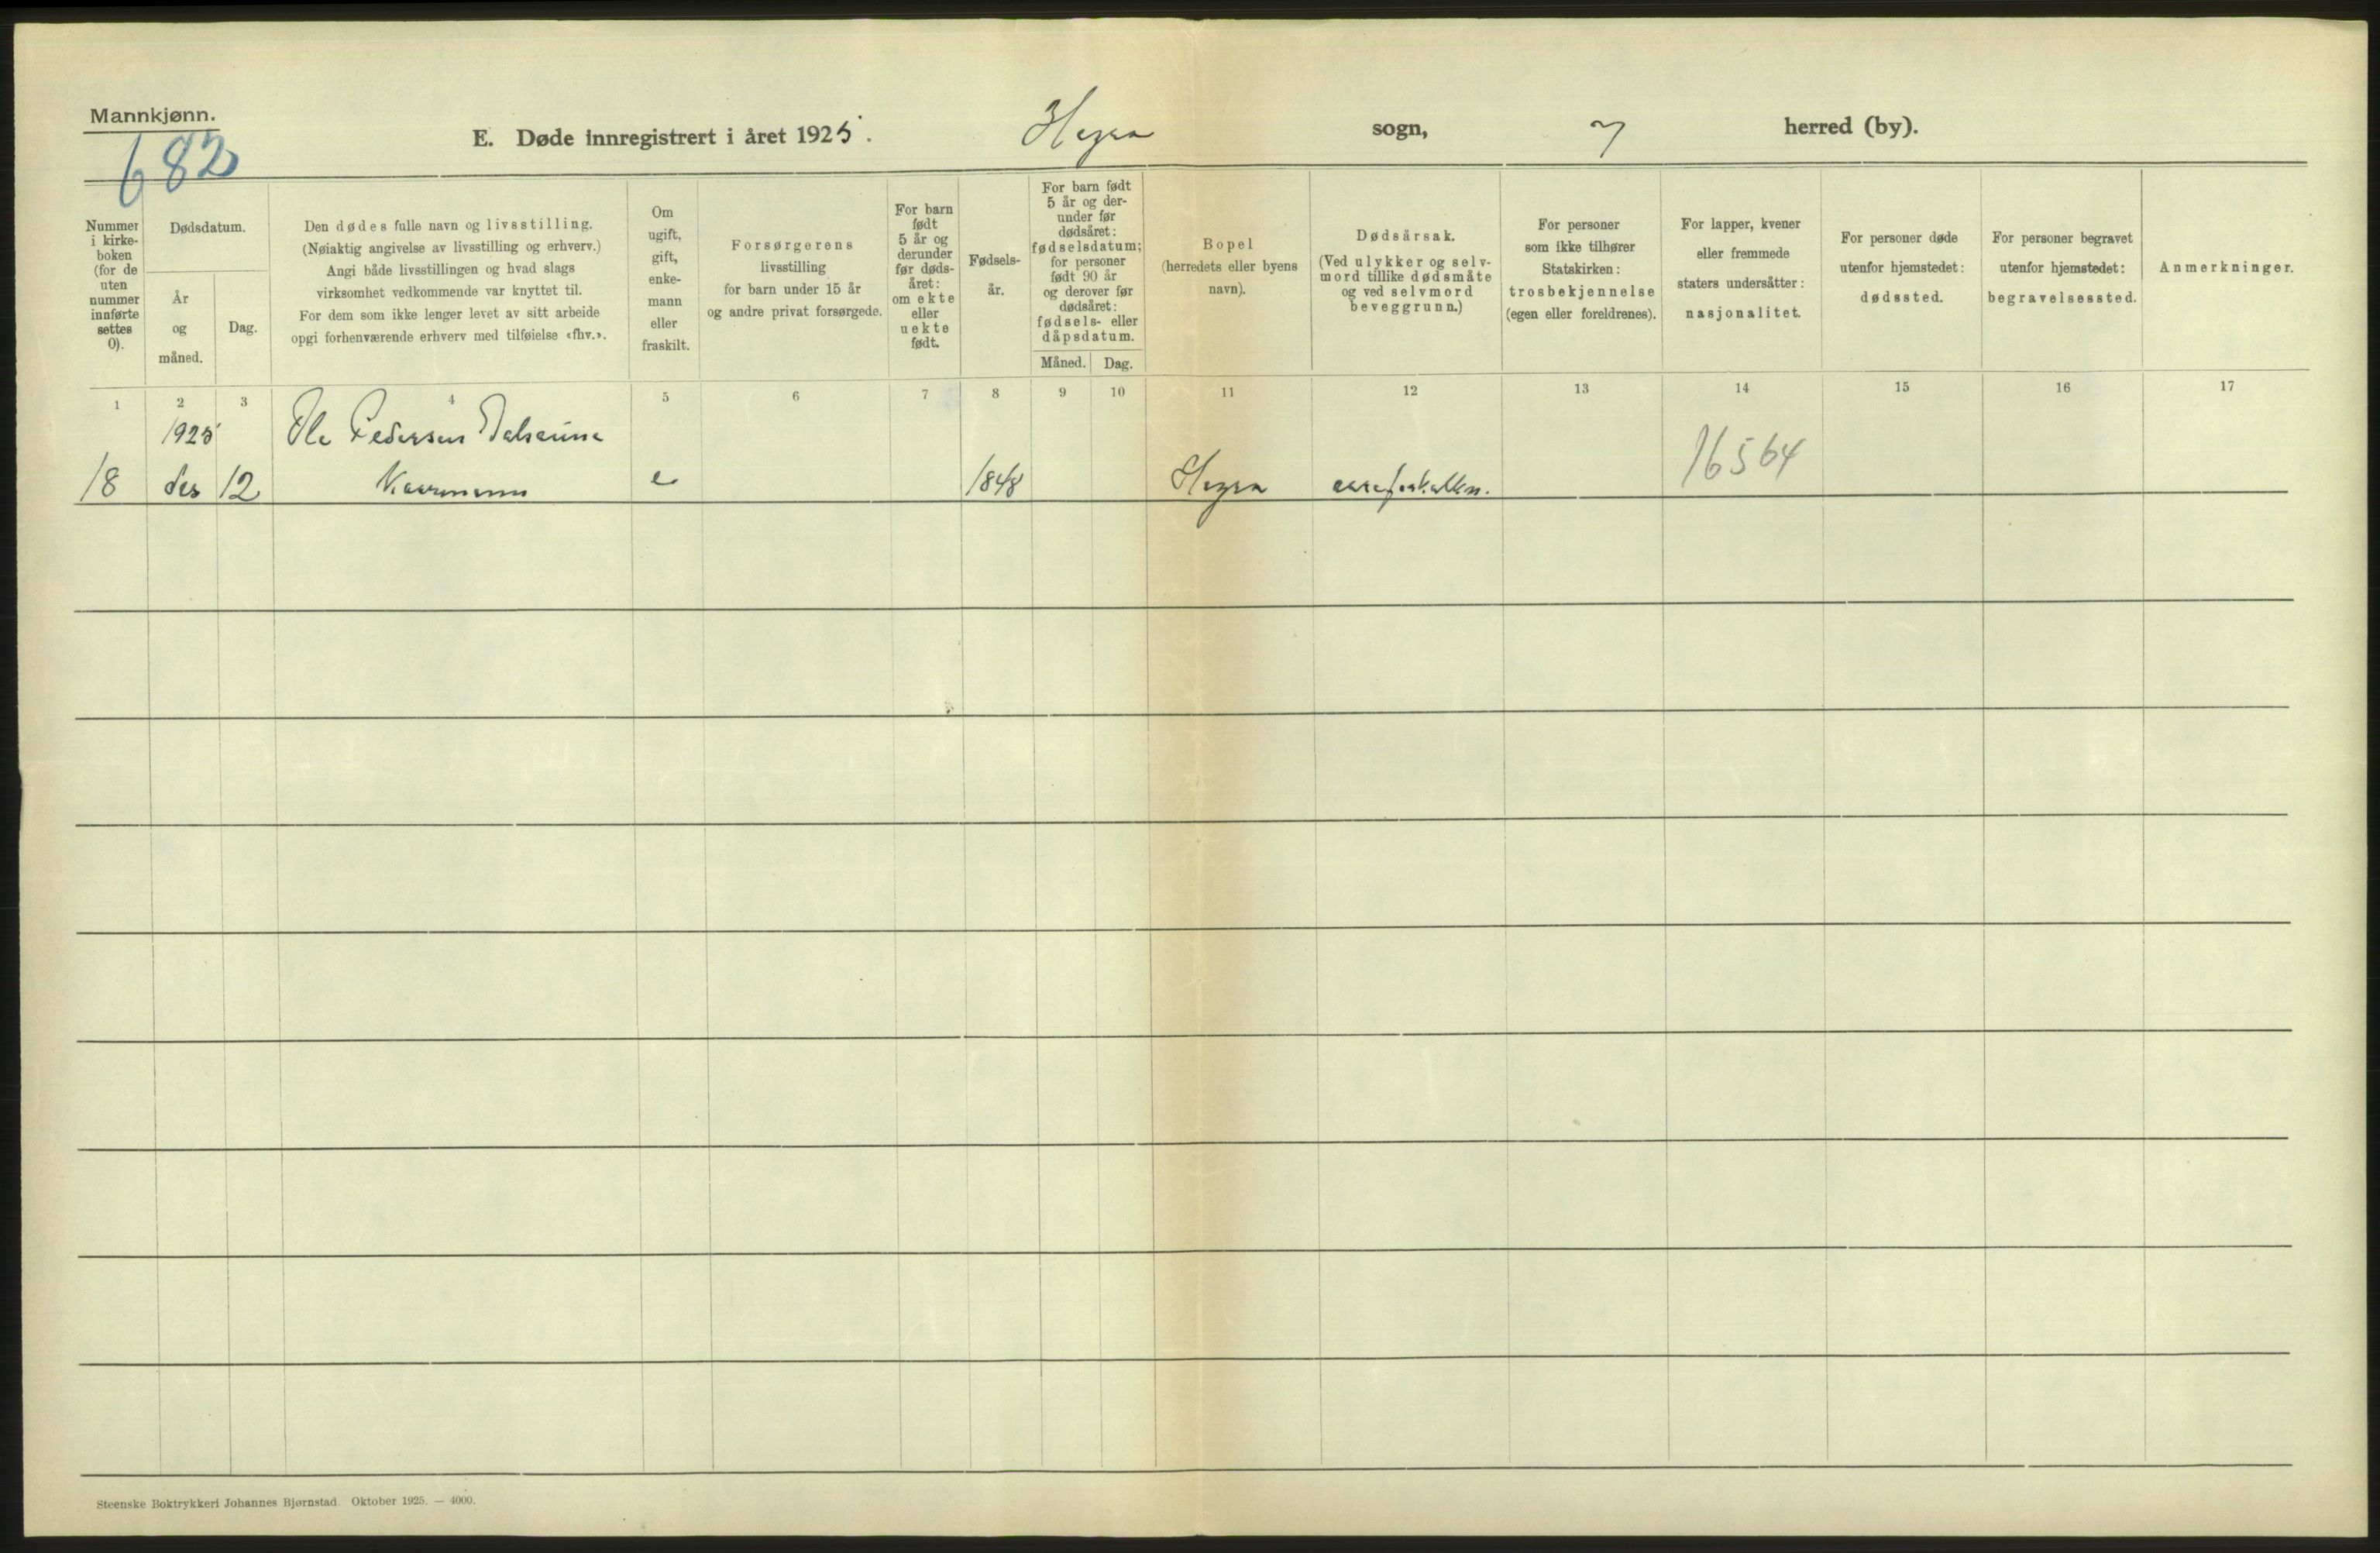 Mannkjønn.
682
E. Døde innregistrert i året 1925. Hegra sogn, herred (by).
Nummer i kirke-boken (for de uten nummer innførte settes 0).
Dødsdatum.
År og måned.
Dag.
Den dødes fulle navn og livsstilling.
(Nøiaktig angivelse av livsstilling og erhverv.)
Angi både livsstillingen og hvad slags
virksomhet vedkommende var knyttet til.
For dem som ikke lenger levet av sitt arbeide
opgi forhenværende erhverv med tilføielse «fhv.».
Om ugift, gift, enke-mann eller fraskilt.
Forsørgerens
livsstilling
for barn under 15 år
og andre privat forsørgede.
For barn født 5 år og derunder før døds-året: om ekte eller uekte født.
Fødsels-år.
For barn født 5 år og der-under før dødsåret: fødselsdatum; for personer født 90 år og derover før dødsåret: fødsels- eller dåpsdatum.
Måned. Dag.
Bopel
(herredets eller byens
navn).
Dødsårsak.
(Ved ulykker og selv-
mord tillike dødsmåte
og ved selvmord
beveggrunn.)
For personer
som ikke tilhører
Statskirken:
trosbekjennelse
(egen eller foreldrenes).
For lapper, kvener
eller fremmede
staters undersåtter:
nasjonalitet.
For personer døde
utenfor hjemstedet:
dødssted.
For personer begravet
utenfor hjemstedet:
begravelsessted.
Anmerkninger.
1 2 3 4 5 6 7 8 9 10 11 12 13 14 15 16 17
1925 Ole Pedersen
18 des 12 e 1848 Hegra 16564
Steenske Boktrykkeri Johannes Bjørnstad. Oktober 1925. — 4000.